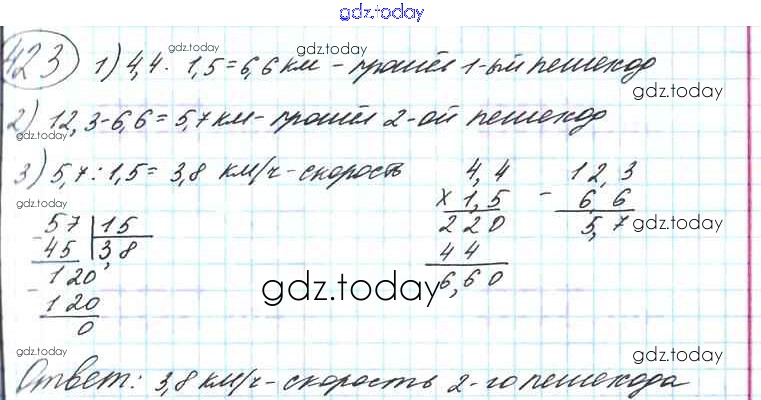 gdz.today
423 1) 4,4 · 1,5 = 6,6 км – прошёл 1-ый пешеход
gdz.today
gdz.today
2) 12,3 - 6,6 = 5,7 км – прошёл 2-ой пешеход
gdz.today
3) 5,7 : 1,5 = 3,8 км/ч – скорость
gdz.today
57 | 15
- 45 3,8
120
- 120
0
4,4
x 1,5
220
44
6,60
12,3
- 6,6
5,7
gdz.today
gdz.today
gdz.today
Ответ: 3,8 км/ч – скорость 2-го пешехода
gdz.today